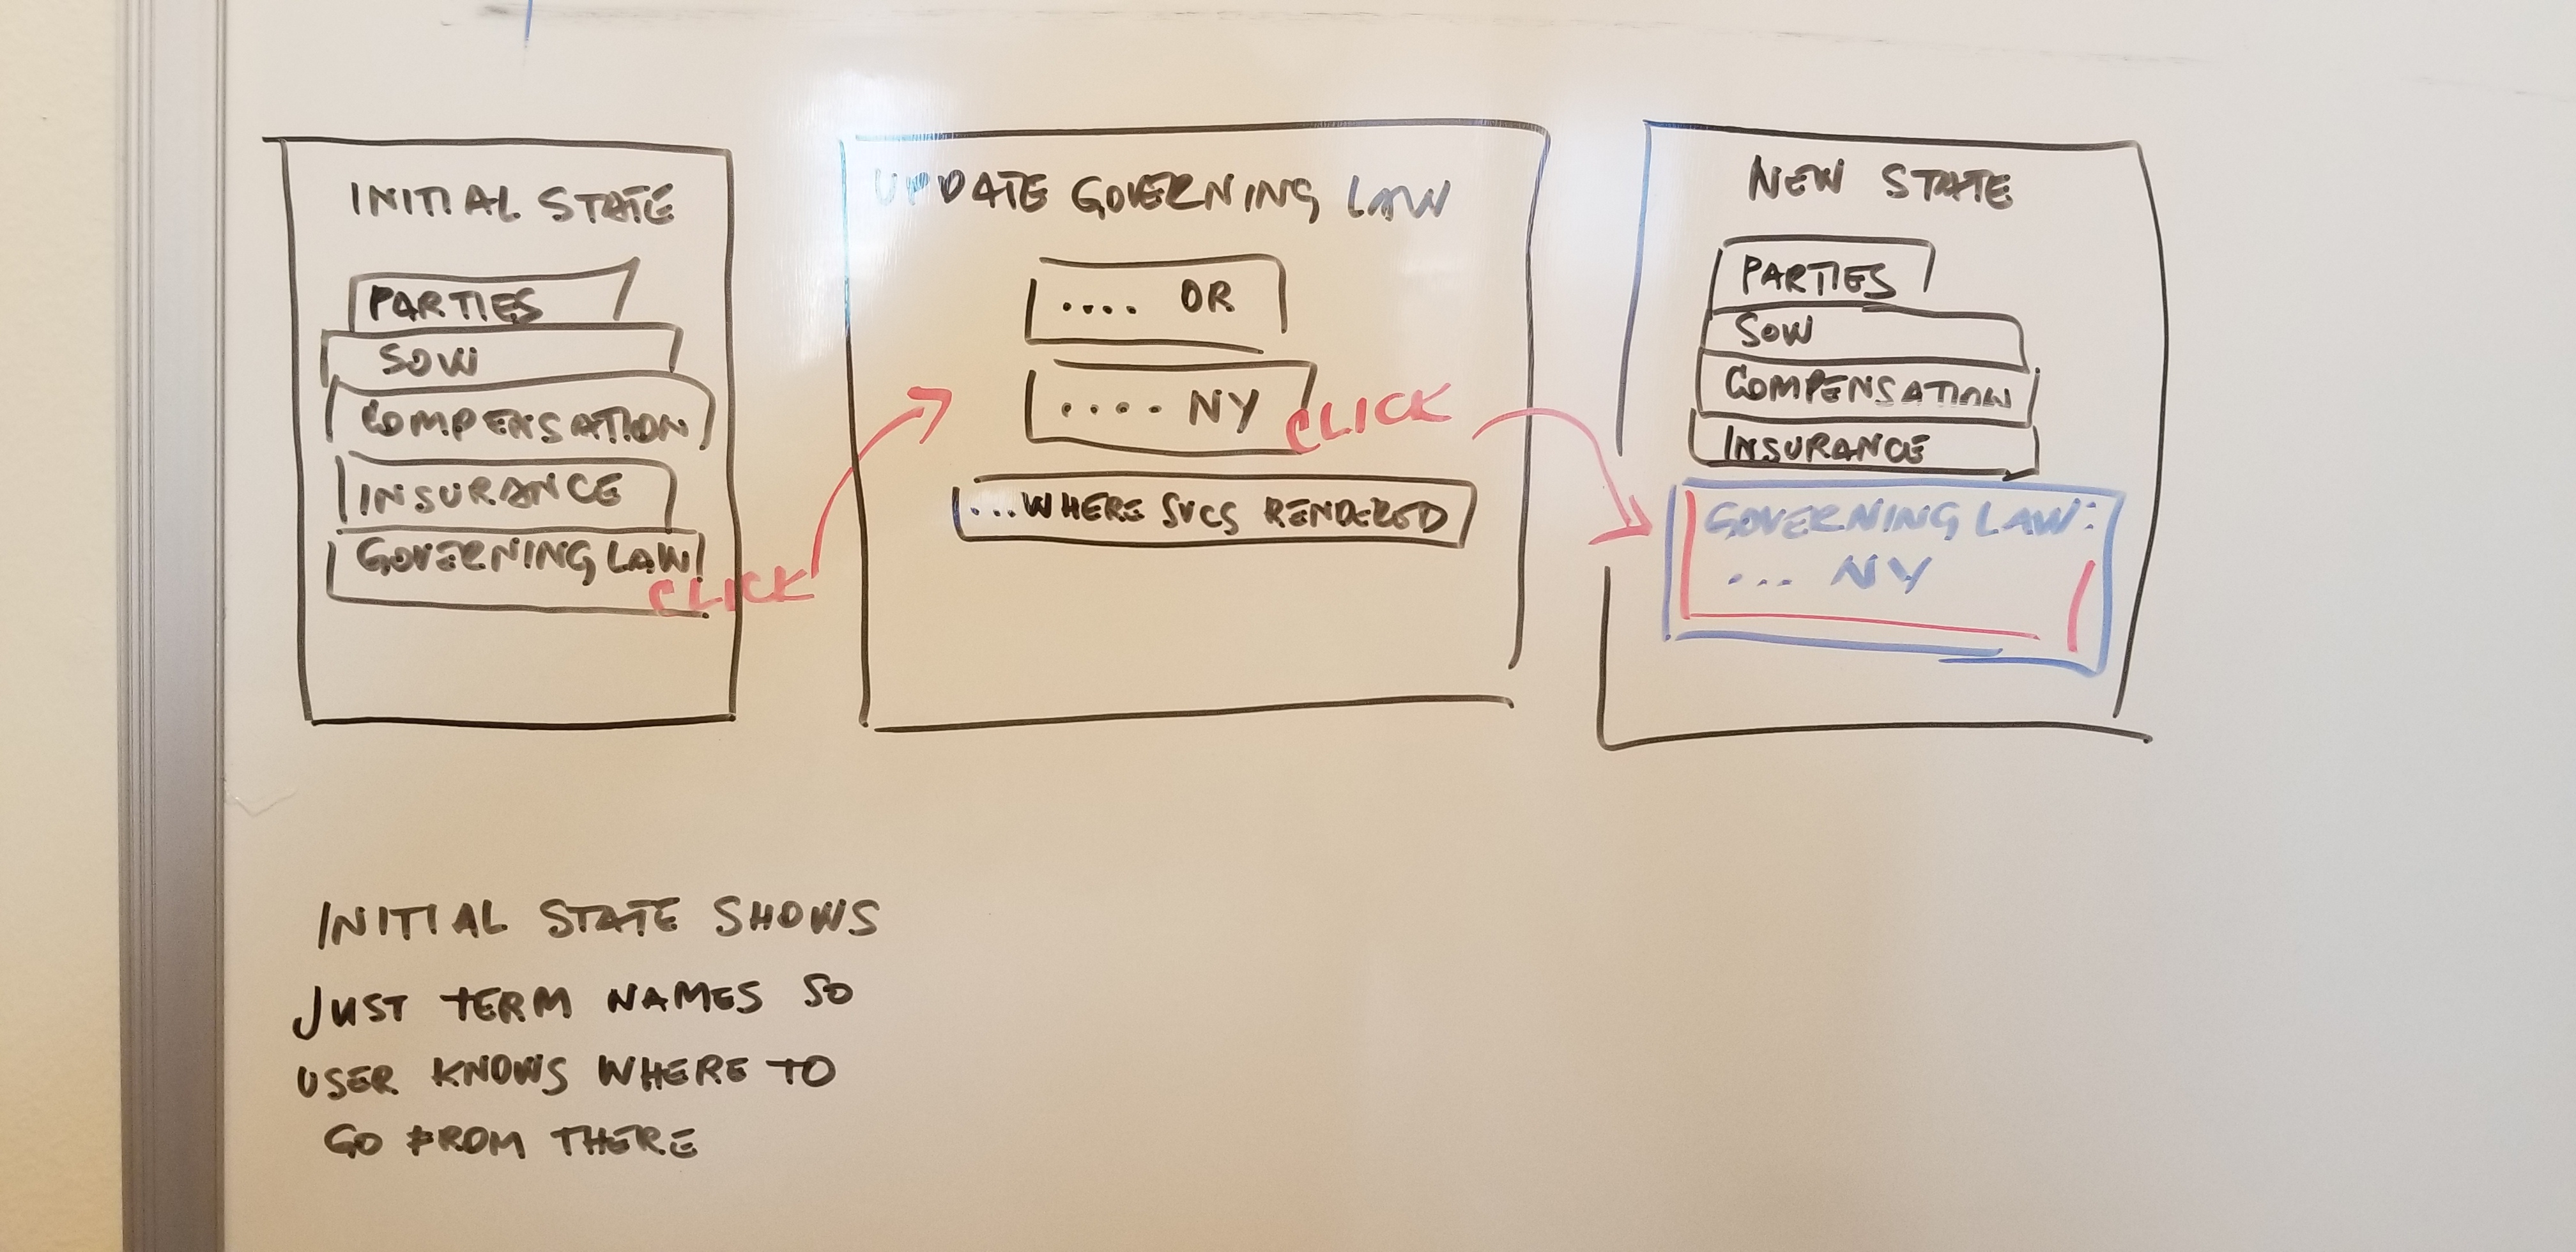 INITIAL STATE
PARTIES
SOW
COMPENSATION
INSURANCE
GOVERNING LAW
CLICK
UPDATE GOVERNING LAW
.... OR
.... NY
CLICK
...WHERE SVCS RENDERED
NEW STATE
PARTIES
SOW
COMPENSATION
INSURANCE
GOVERNING LAW:
... NY
INITIAL STATE SHOWS
JUST TERM NAMES SO
USER KNOWS WHERE TO
GO FROM THERE